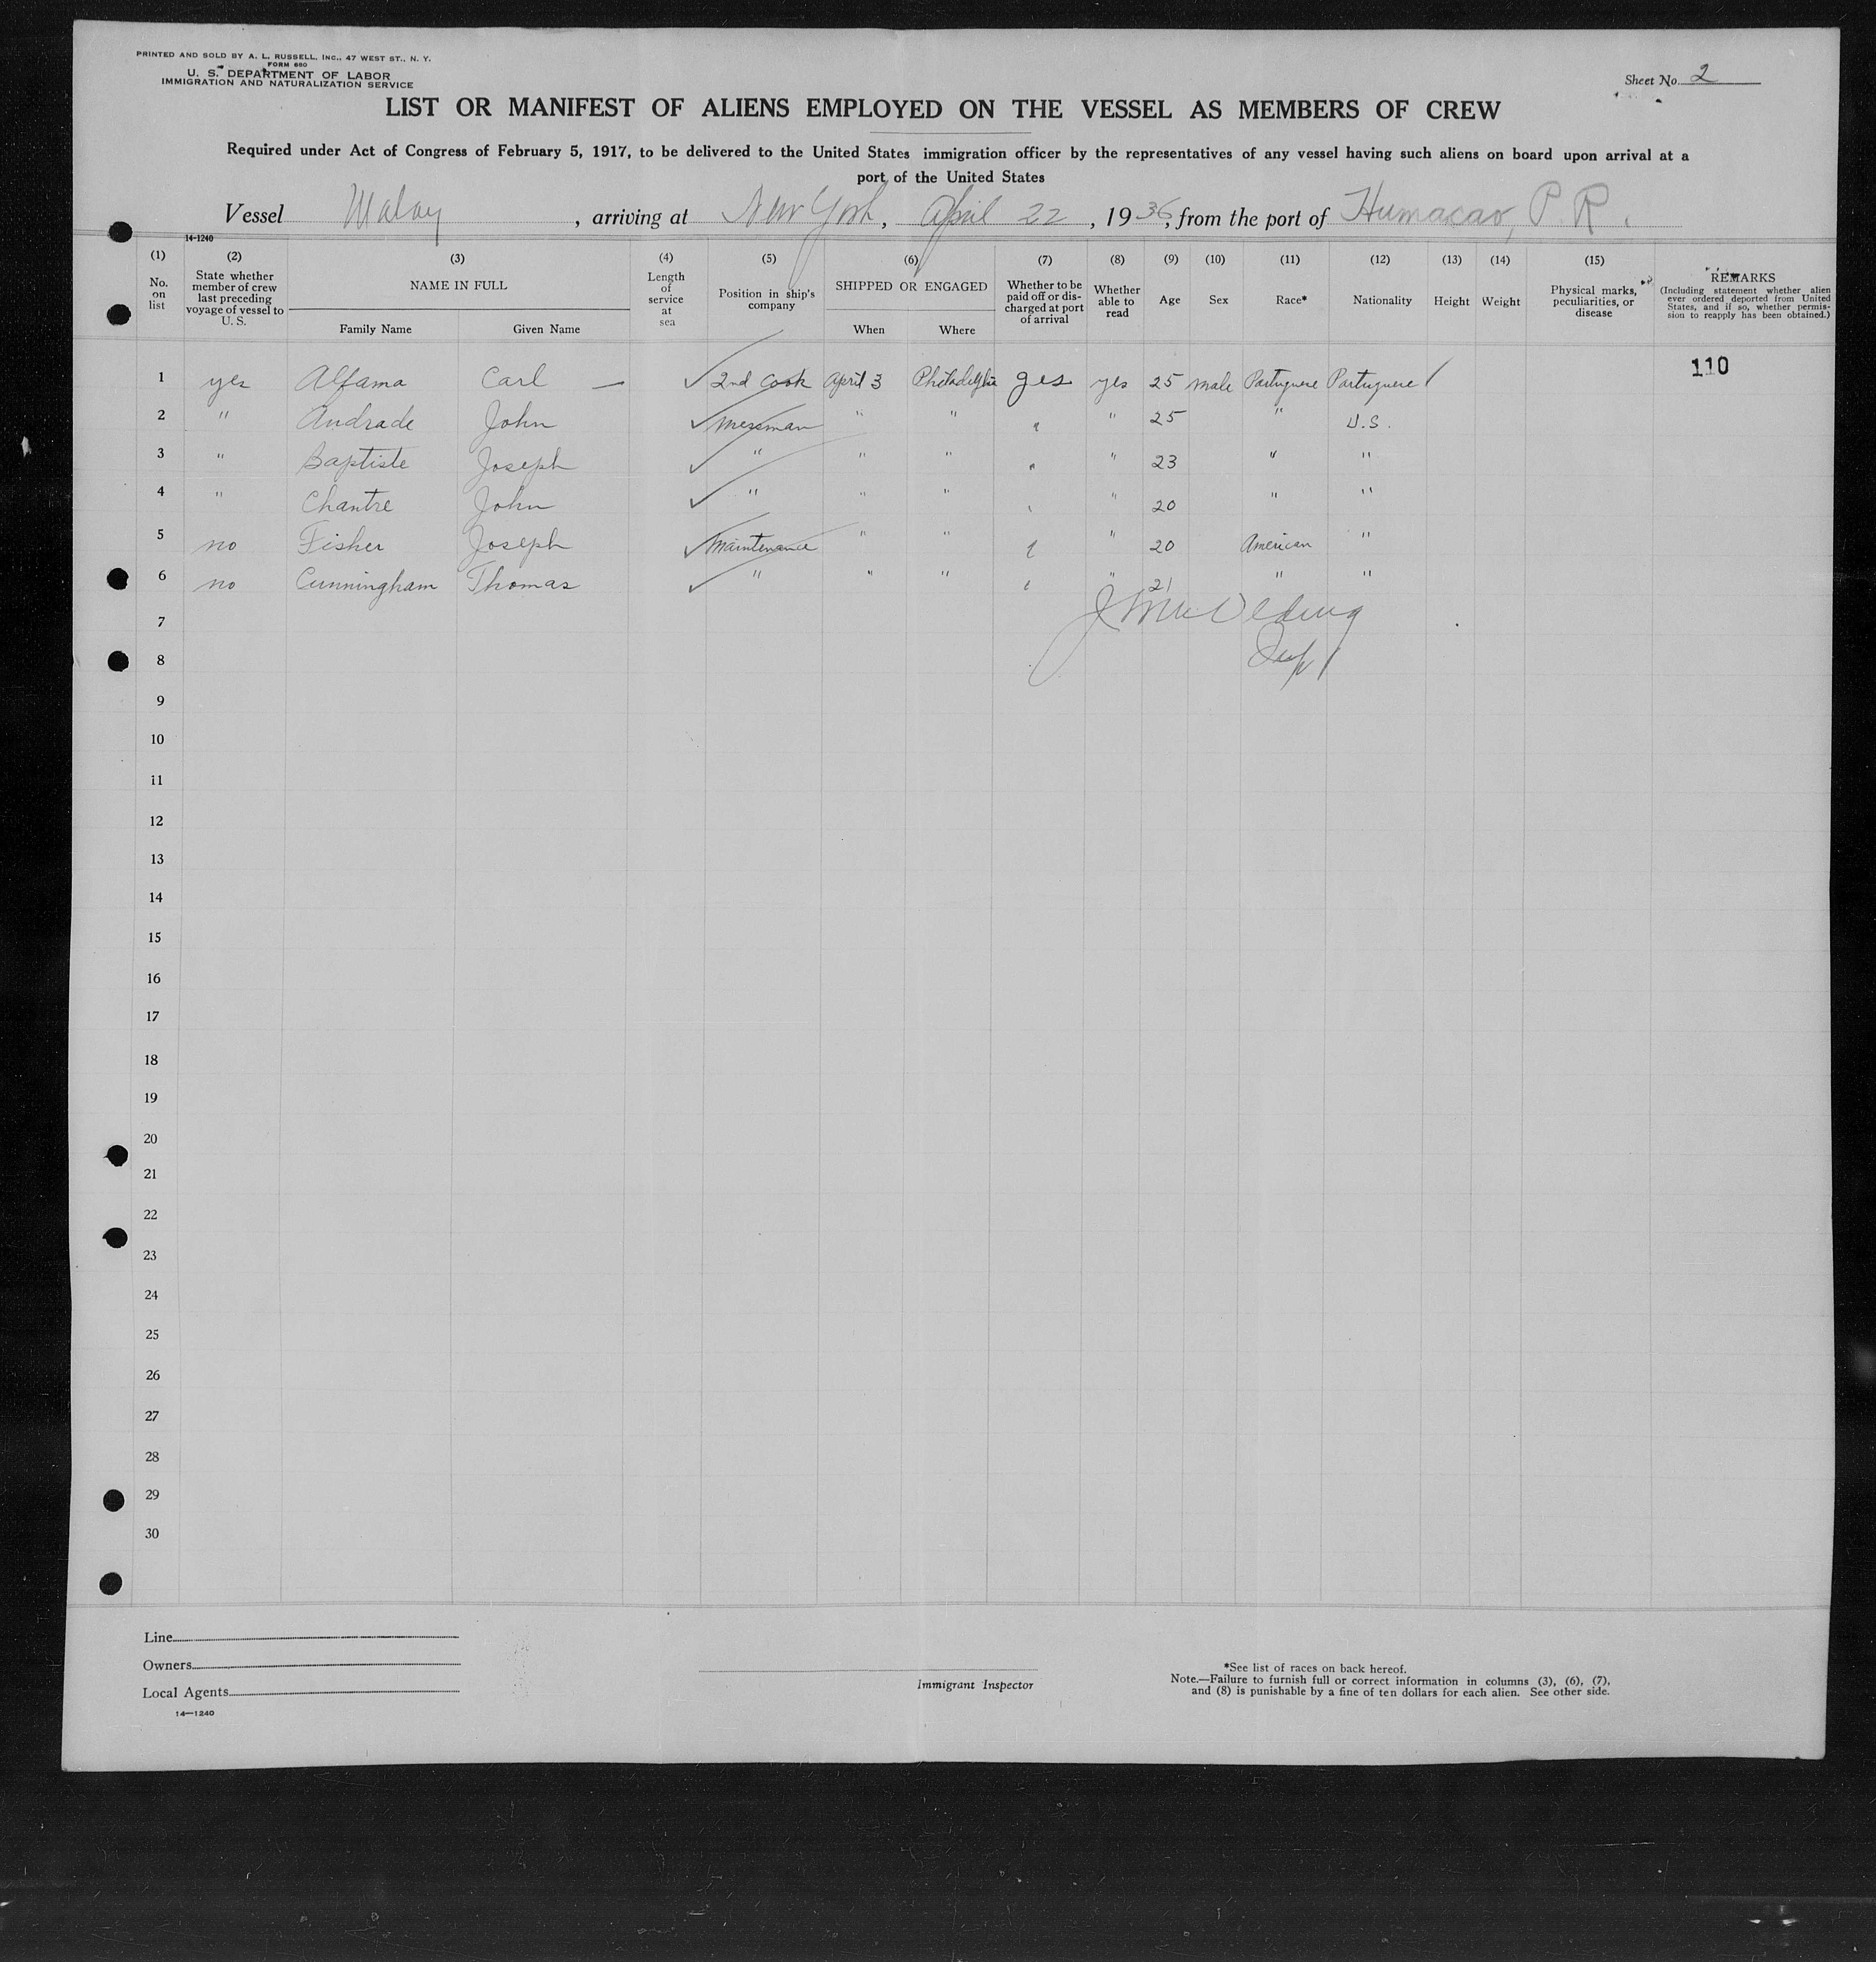 PRINTED AND SOLD BY A. L. RUSSELL, INC., 47 WEST ST., N. Y.
FORM 680
U. S. DEPARTMENT OF LABOR
IMMIGRATION AND NATURALIZATION SERVICE
Sheet No. 2
LIST OR MANIFEST OF ALIENS EMPLOYED ON THE VESSEL AS MEMBERS OF CREW
Required under Act of Congress of February 5, 1917, to be delivered to the United States immigration officer by the representatives of any vessel having such aliens on board upon arrival at a
port of the United States
Vessel Malay, arriving at New York, April 22, 1936, from the port of Humacao, P. R.
14-1240
(1) (2) (3) (4) (5) (6) (7) (8) (9) (10) (11) (12) (13) (14) (15)
No. on list
State whether member of crew last preceding voyage of vessel to U. S.
NAME IN FULL
Family Name Given Name
Length of service at sea
Position in ship's company
SHIPPED OR ENGAGED
When Where
Whether to be paid off or discharged at port of arrival
Whether able to read
Age
Sex
Race*
Nationality
Height
Weight
Physical marks, peculiarities, or disease
REMARKS
(Including statement whether alien ever ordered deported from United States, and if so, whether permission to reapply has been obtained.)
110
1 yes Alfama Carl — ✓ 2nd Cook April 3 Philadelphia yes yes 25 male Portuguese Portuguese
2 " Andrade John ✓ Messman " " " " 25 " U.S.
3 " Baptiste Joseph ✓ " " " " " 23 " "
4 " Chantre John ✓ " " " " " 20 " "
5 no Fisher Joseph ✓ Maintenance " " " " 20 American "
6 no Cunningham Thomas ✓ " " " " " 21 " "
7
8
9
10
11
12
13
14
15
16
17
18
19
20
21
22
23
24
25
26
27
28
29
30
Line
Owners
Local Agents
14—1240
Immigrant Inspector
*See list of races on back hereof.
Note.—Failure to furnish full or correct information in columns (3), (6), (7),
and (8) is punishable by a fine of ten dollars for each alien. See other side.